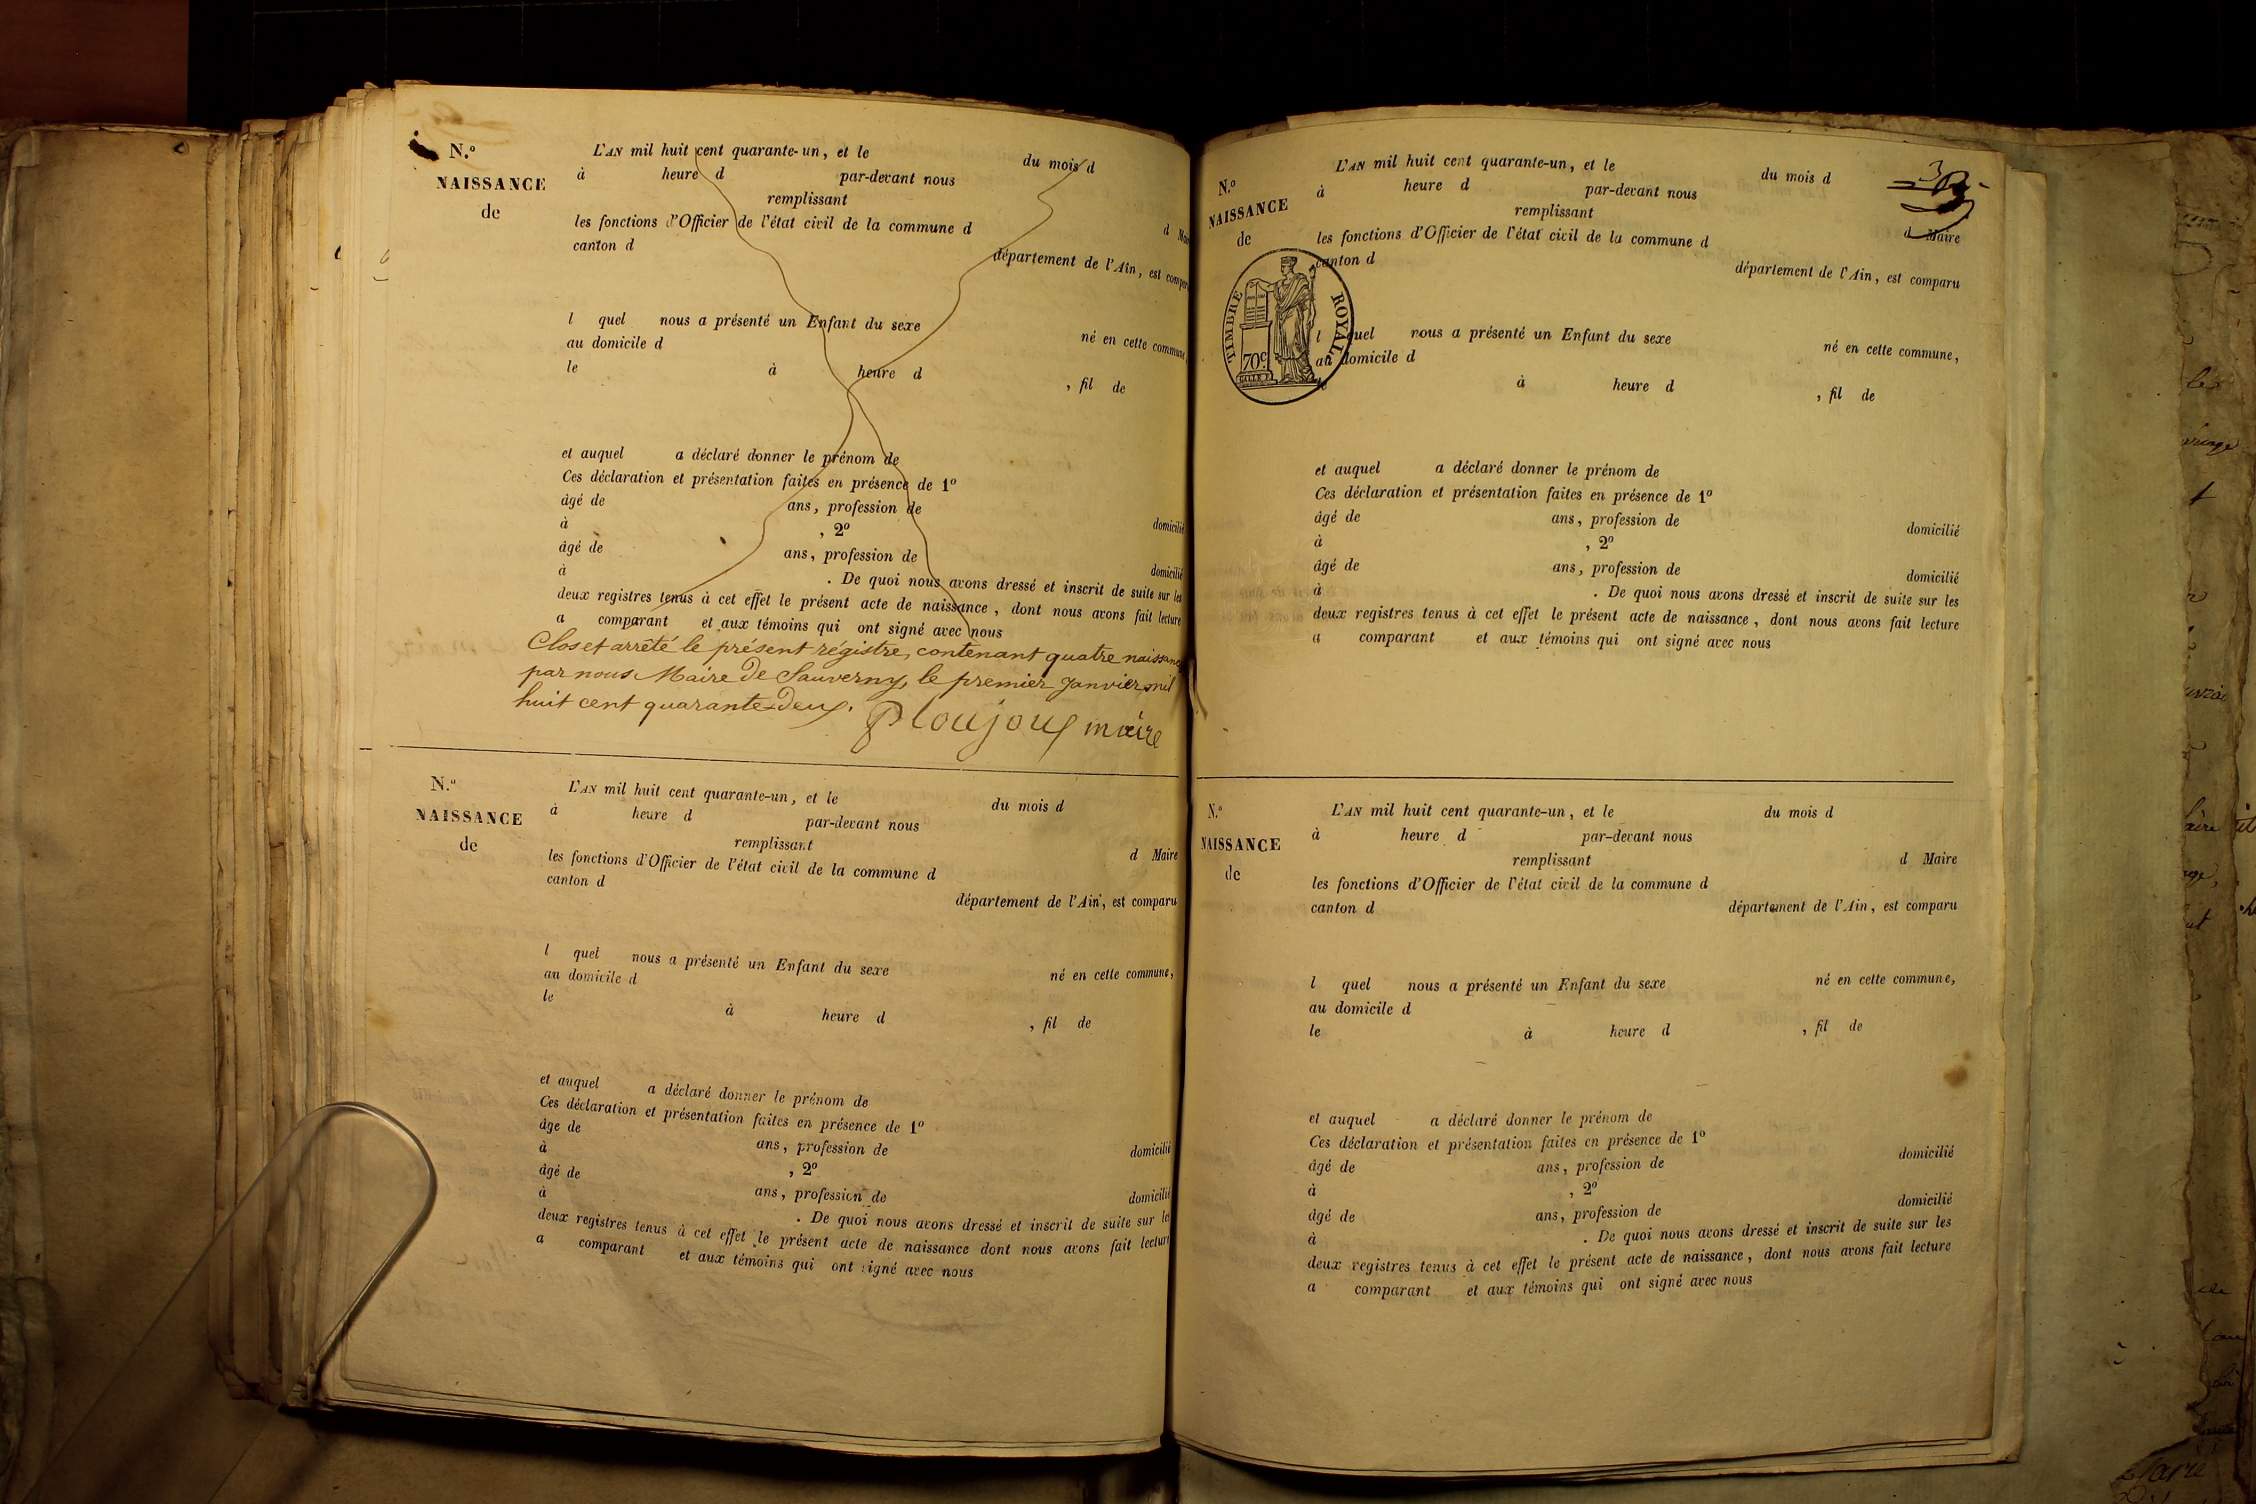 N.º
NAISSANCE
de
L'AN mil huit cent quarante-un, et le du mois d
à heure d par-devant nous
remplissant
les fonctions d'Officier de l'état civil de la commune d d Mai
canton d département de l'Ain, est compar
l quel nous a présenté un Enfant du sexe né en cette commune
au domicile d
le à heure d , fil de
et auquel a déclaré donner le prénom de
Ces déclaration et présentation faites en présence de 1º
âgé de ans, profession de domicilié
à , 2º
âgé de ans, profession de domicilié
à . De quoi nous avons dressé et inscrit de suite sur les
deux registres tenus à cet effet le présent acte de naissance, dont nous avons fait lecture
a comparant et aux témoins qui ont signé avec nous
Clos et arrêté le présent régistre, contenant quatre naissances
par nous Maire de Sauverny, le premier janvier mil
huit cent quarante-deux.
Ploujoux maire
N.º
NAISSANCE
de
L'AN mil huit cent quarante-un, et le du mois d
à heure d par-devant nous
remplissant d Maire
les fonctions d'Officier de l'état civil de la commune d
canton d département de l'Ain, est comparu
l quel nous a présenté un Enfant du sexe né en cette commune,
au domicile d
le à heure d , fil de
et auquel a déclaré donner le prénom de
Ces déclaration et présentation faites en présence de 1º
âge de ans, profession de domicilié
à , 2º
âgé de ans, profession de domicilié
à . De quoi nous avons dressé et inscrit de suite sur le
deux registres tenus à cet effet le présent acte de naissance dont nous avons fait lecture
a comparant et aux témoins qui ont signé avec nous
N.º
NAISSANCE
de
TIMBRE ROYAL
70c
L'AN mil huit cent quarante-un, et le du mois d
à heure d par-devant nous
remplissant d Maire
les fonctions d'Officier de l'état civil de la commune d
canton d département de l'Ain, est comparu
l quel nous a présenté un Enfant du sexe né en cette commune,
au domicile d
le à heure d , fil de
et auquel a déclaré donner le prénom de
Ces déclaration et présentation faites en présence de 1º
âgé de ans, profession de domicilié
à , 2º
âgé de ans, profession de domicilié
à . De quoi nous avons dressé et inscrit de suite sur les
deux registres tenus à cet effet le présent acte de naissance, dont nous avons fait lecture
a comparant et aux témoins qui ont signé avec nous
N.º
NAISSANCE
de
L'AN mil huit cent quarante-un, et le du mois d
à heure d par-devant nous
remplissant d Maire
les fonctions d'Officier de l'état civil de la commune d
canton d département de l'Ain, est comparu
l quel nous a présenté un Enfant du sexe né en cette commune,
au domicile d
le à heure d , fil de
et auquel a déclaré donner le prénom de
Ces déclaration et présentation faites en présence de 1º
âgé de ans, profession de domicilié
à , 2º
âgé de ans, profession de domicilié
à . De quoi nous avons dressé et inscrit de suite sur les
deux registres tenus à cet effet le présent acte de naissance, dont nous avons fait lecture
a comparant et aux témoins qui ont signé avec nous